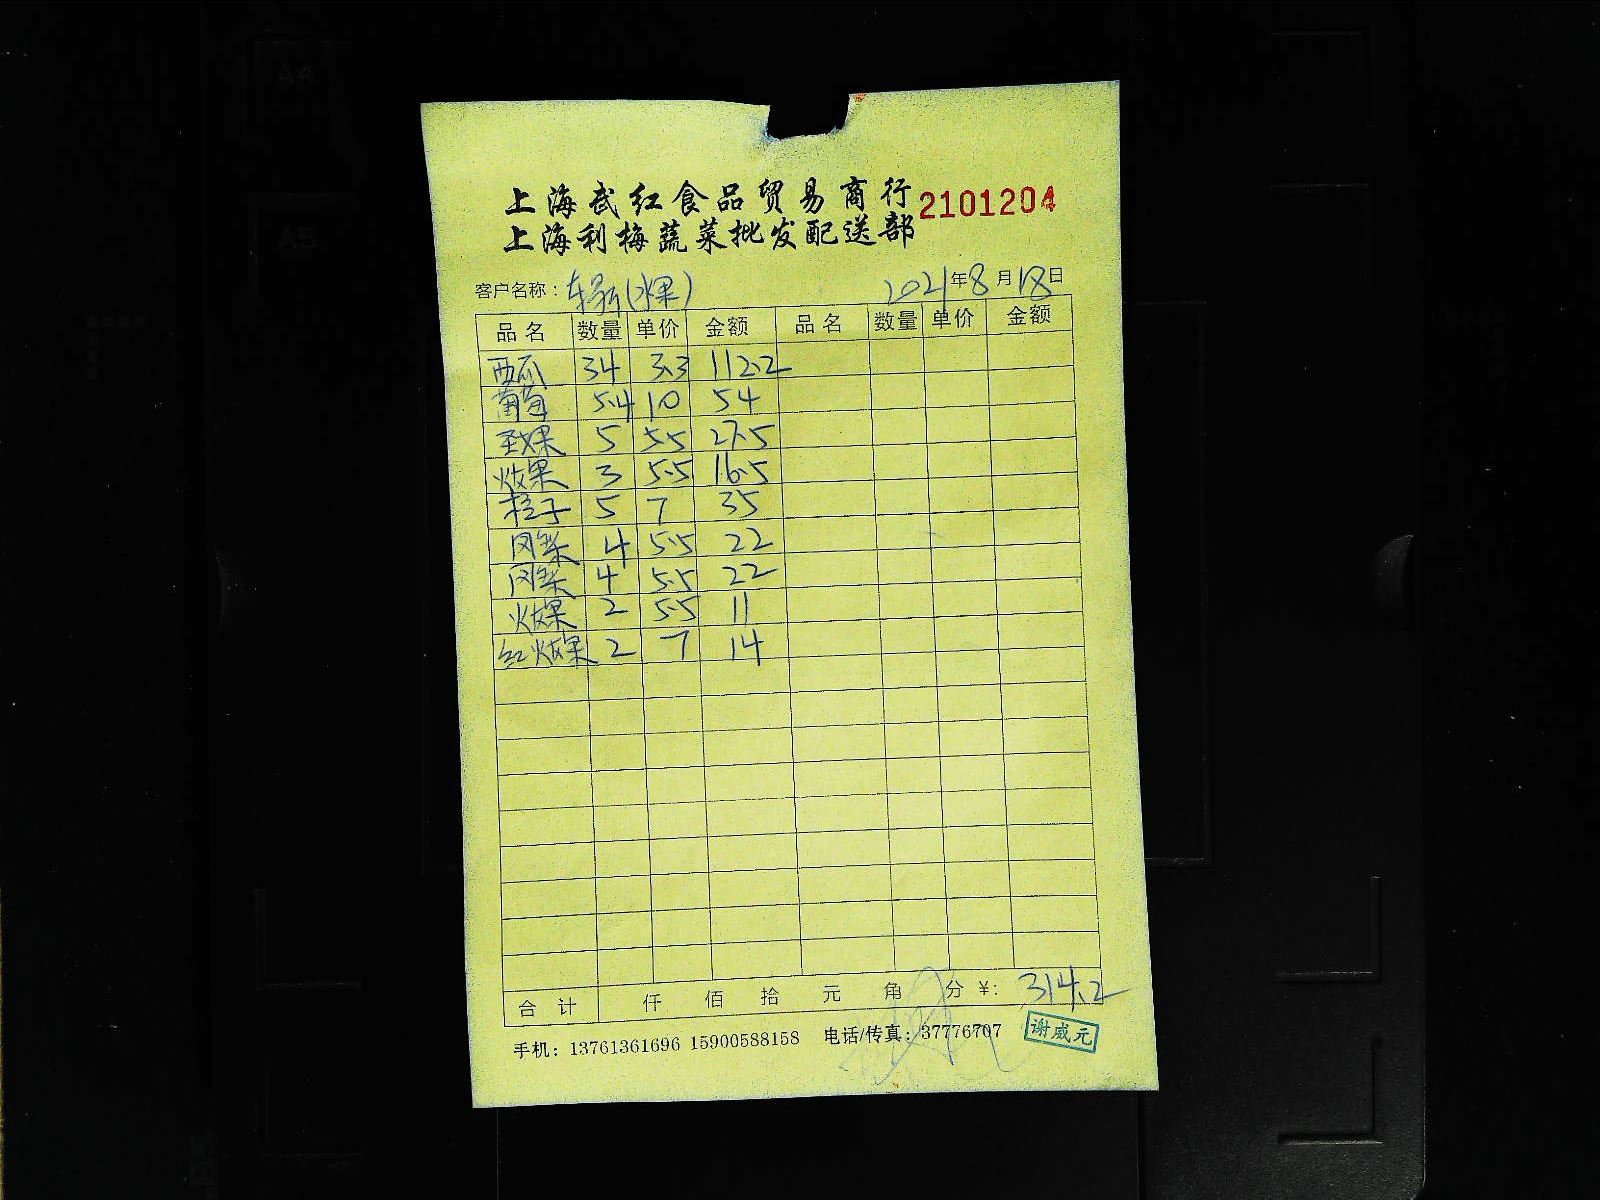 A4
A5
上海武红食品贸易商行 2101204
上海利梅蔬菜批发配送部
客户名称: (水果) 2021年8月18日
品名 数量 单价 金额 品名 数量 单价 金额
西瓜 34 3.3 112.2
葡萄 5.4 10 54
圣女果 5 5.5 27.5
火龙果 3 5.5 16.5
桔子 5 7 35
凤梨 4 5.5 22
凤梨 4 5.5 22
火龙果 2 5.5 11
红火龙果 2 7 14
合计 仟 佰 拾 元 角 分 ¥: 314.2
手机: 13761361696 15900588158 电话/传真: 37776707 谢威元